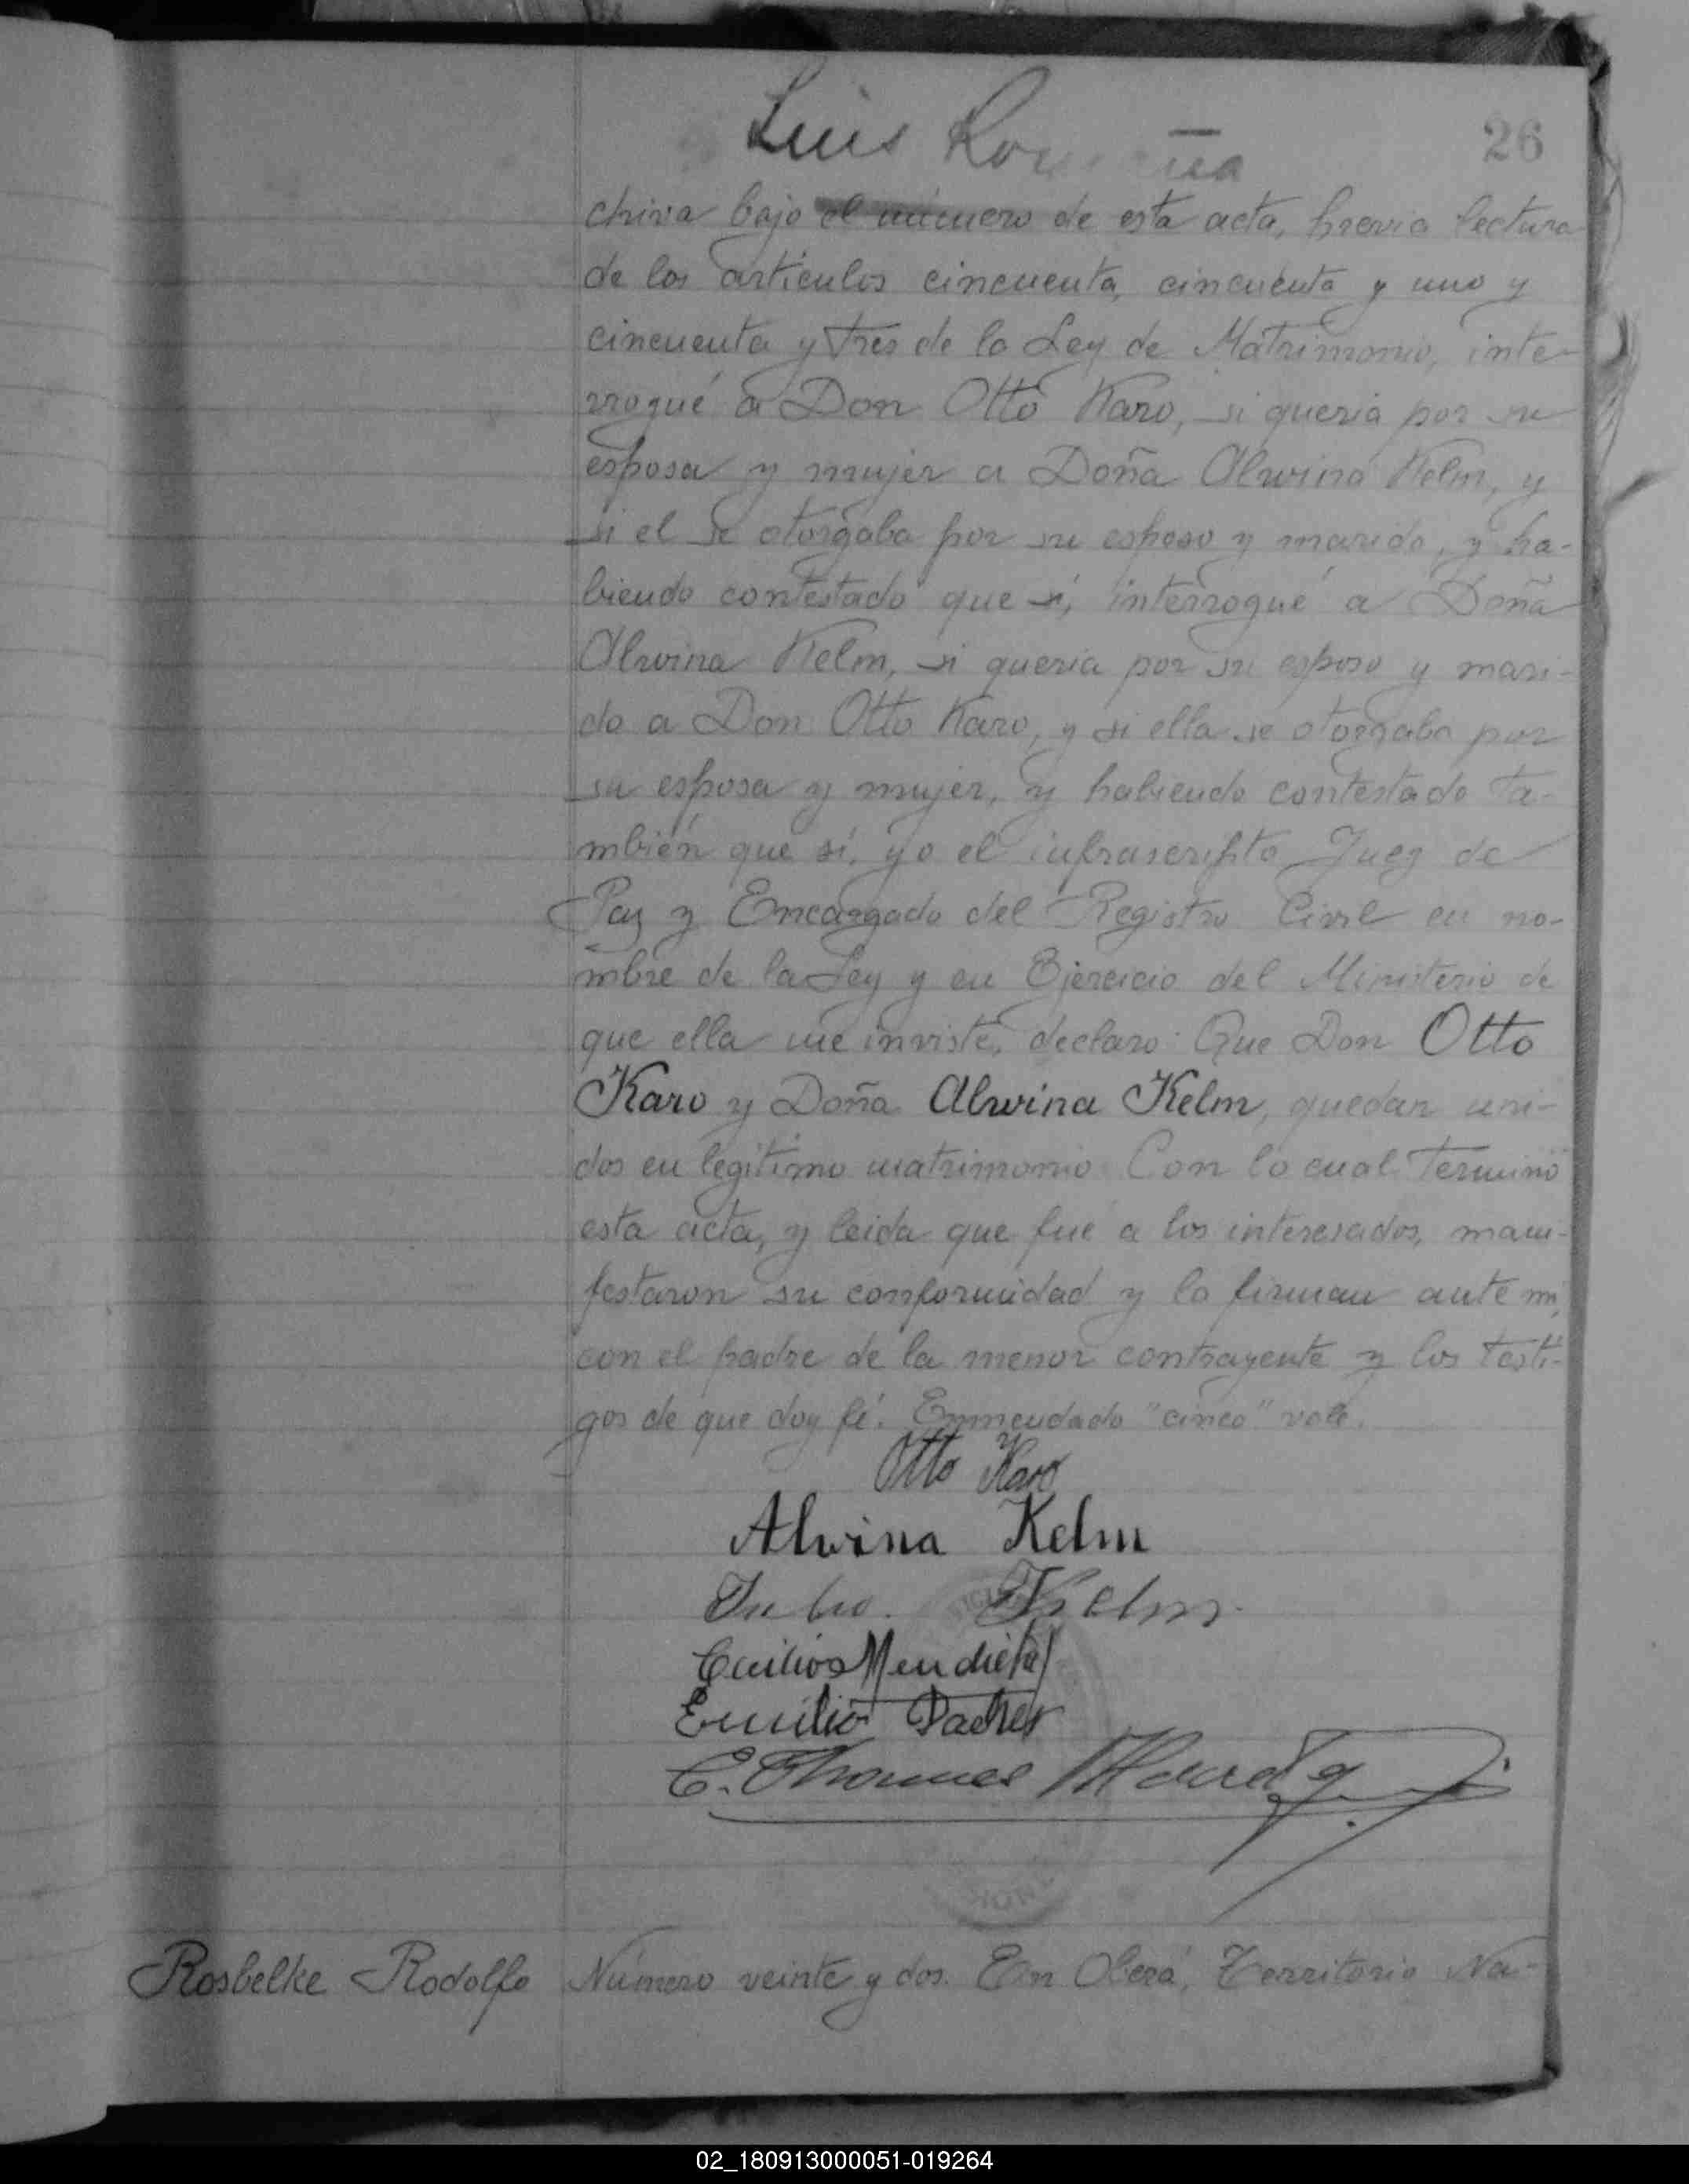 Luis
26
chiva bajo el número de esta acta, previa lectura
de los artículos cincuenta, cincuenta y uno y
cincuenta y tres de la Ley de Matrimonio, inte-
rrogué a Don Otto Karo, si queria por su
esposa y mujer a Doña Alwina Kelm, y
si el se otorgaba por su esposo y marido, y ha-
biendo contestado que sí, interrogué a Doña
Alwina Kelm, si queria por su esposo y mari-
do a Don Otto Karo, y si ella se otorgaba por
su esposa y mujer, y habiendo contestado ta-
mbién que sí, yo el infrascripto Juez de
Paz y Encargado del Registro Civil en no-
mbre de la Ley y en Ejercicio del Ministerio de
que ella me inviste, declaro: Que Don Otto
Karo y Doña Alwina Kelm, quedan uni-
dos en legítimo matrimonio. Con lo cual terminó
esta acta, y leida que fué a los interesados, mani-
festaron su conformidad y la firman ante mi,
con el padre de la menor contrayente y los testi-
gos de que doy fé. Enmendado "cinco" vale.
Otto Karo
Alvina Kelm
Kelm.
Mendieta
Emilio
C. Thomas
Rosbelke Rodolfo Número veinte y dos. En Oberá, Territorio Na-
02_180913000051-019264